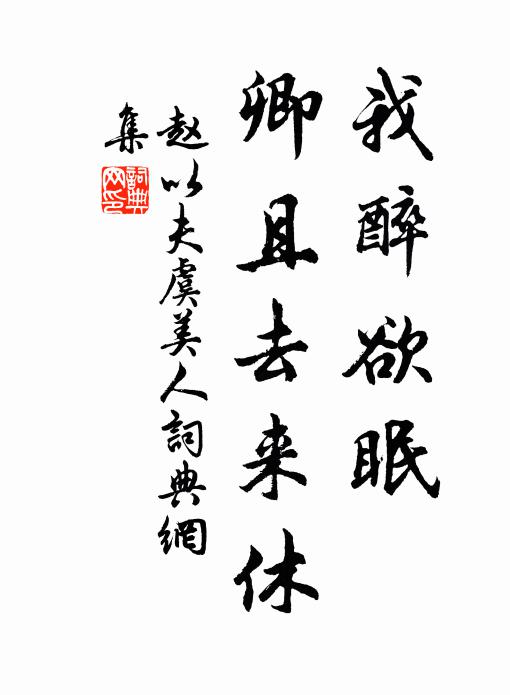 我醉欲眠
卿且去来休
赵以夫虞美人詞典網
集
詞典
网印